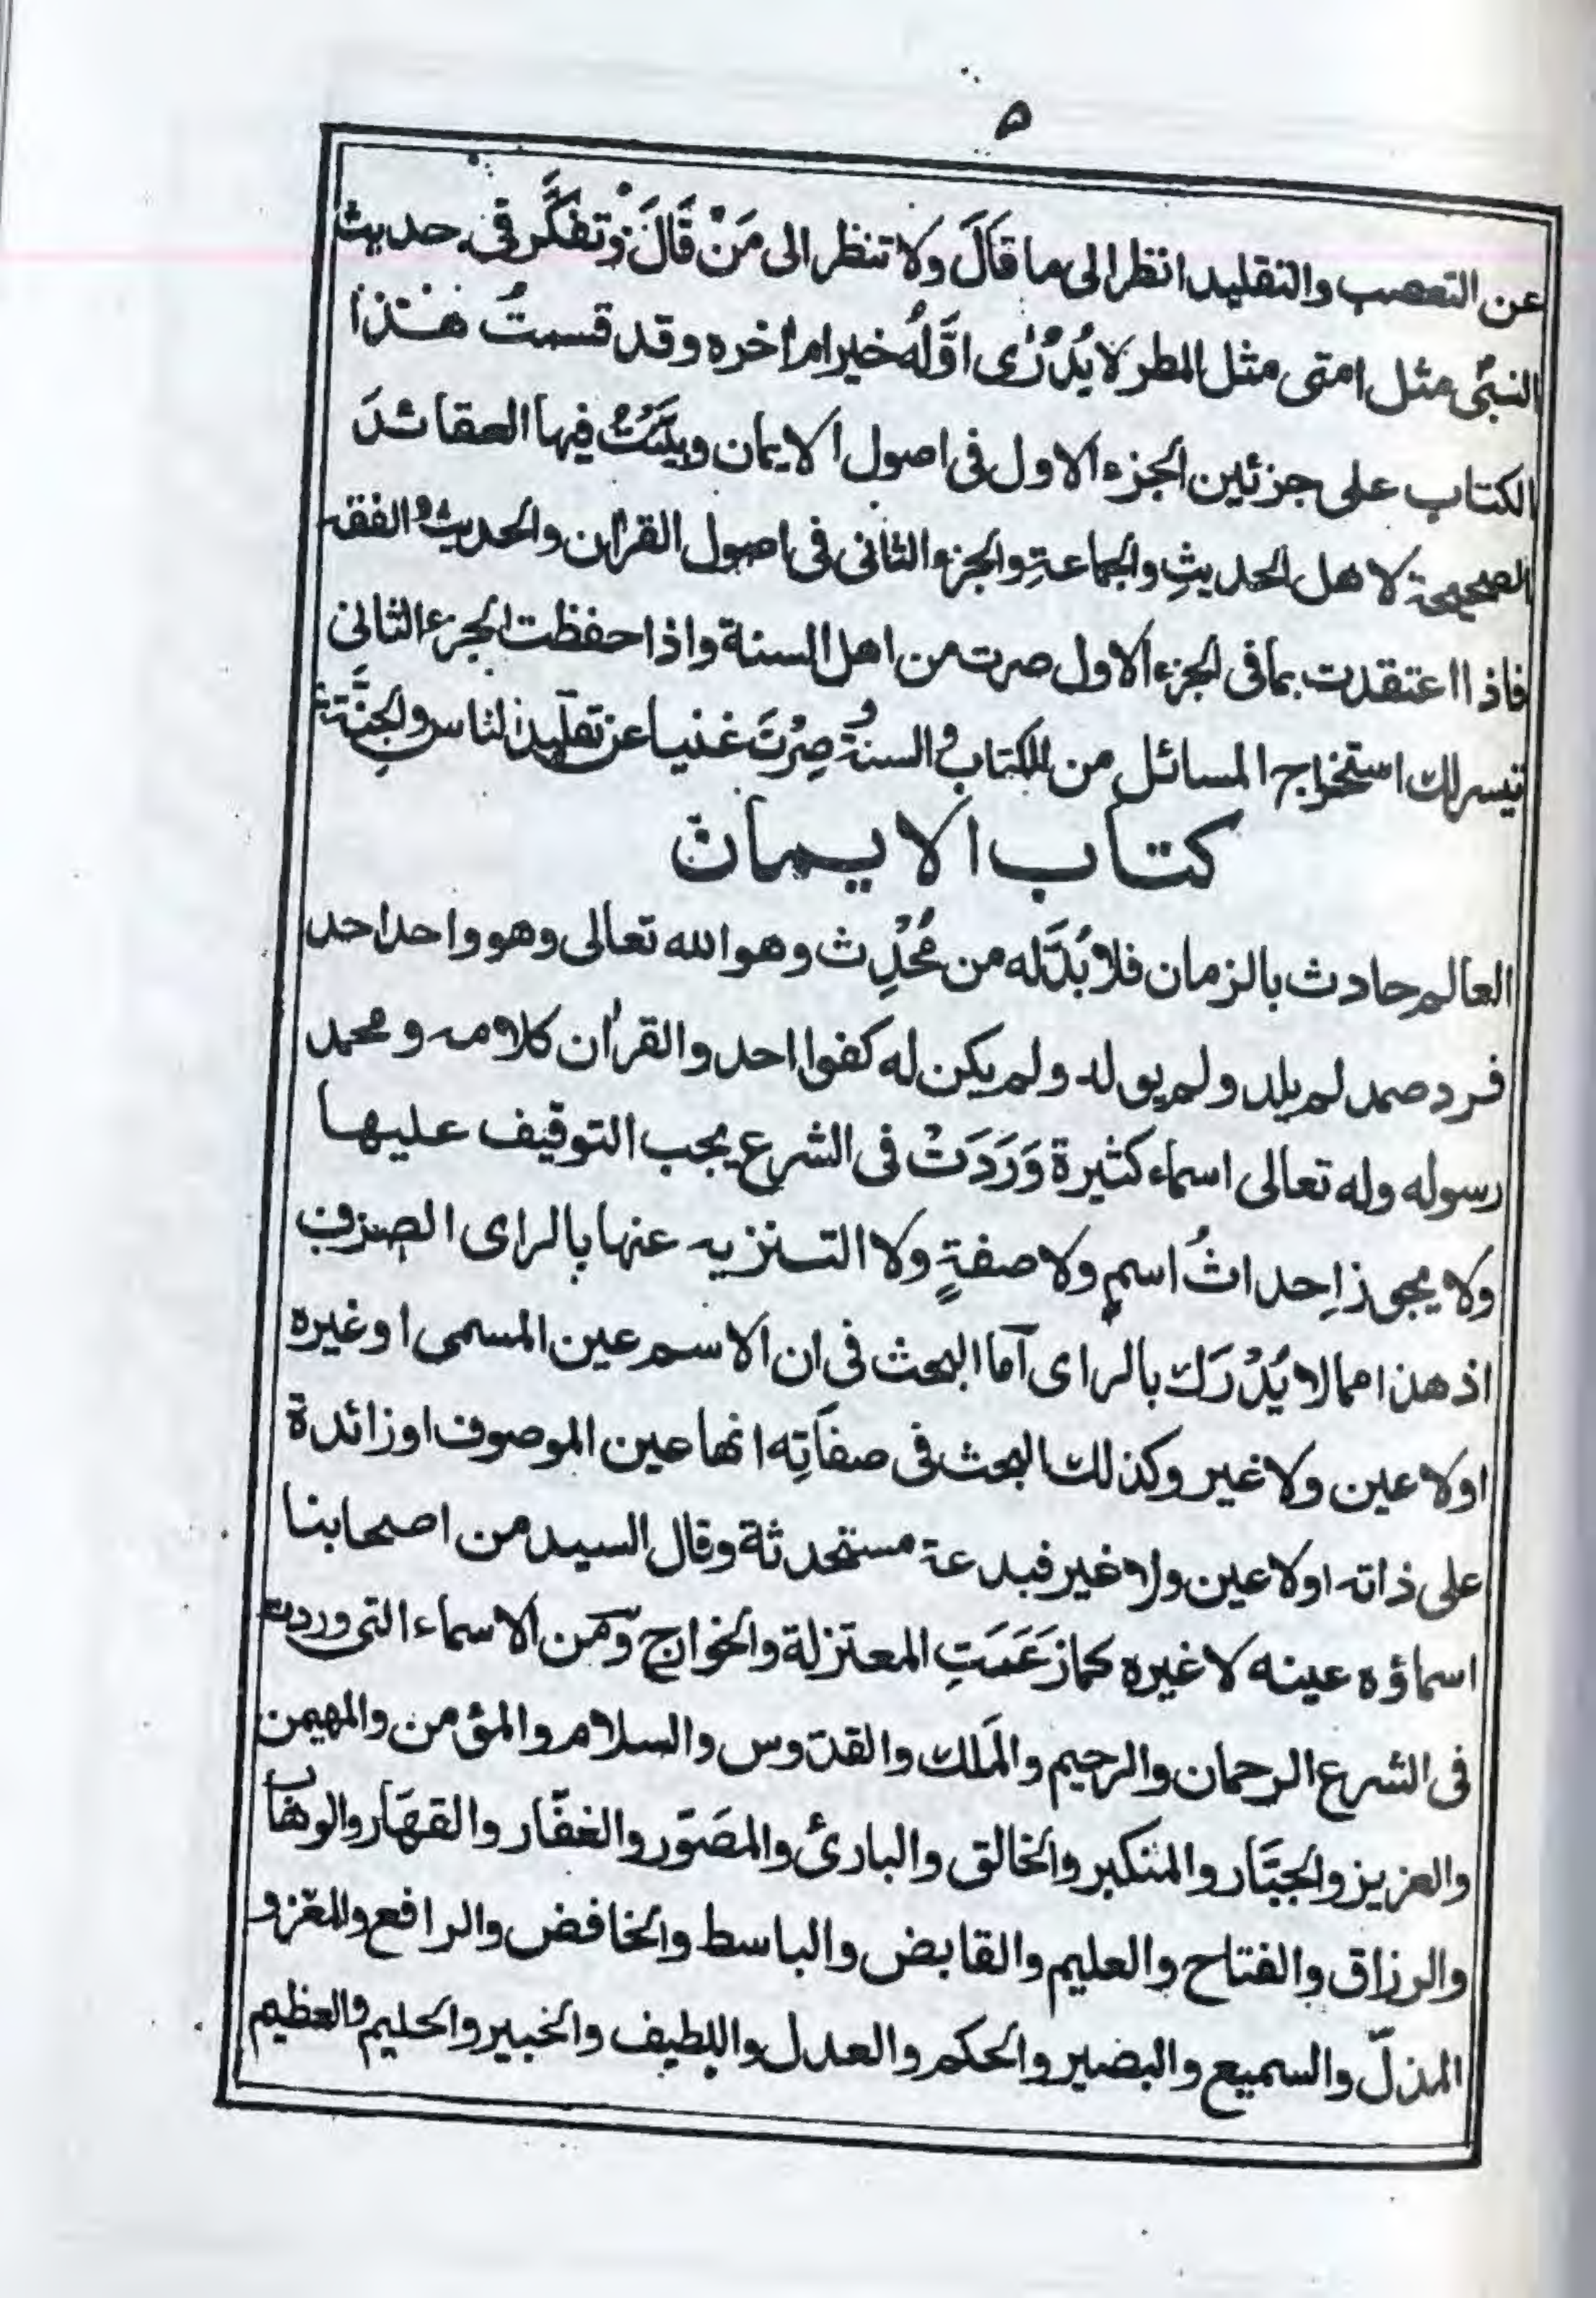 ۵
عن التعصب والتقليد انظر الى ما قَالَ ولا تنظر الى مَنْ قَالَ وتفكَّر فى حديث
النبىّ مثل امتى مثل المطر لا يُدْرٰى اوَّلُهُ خير ام اٰخره وقد قسمتُ هٰذا
الكتاب على جزئين الجزء الاول فى اصول الايمان وبيَّنتُ فيها العقائدَ
الصحيحة لاهل الحديثِ والجماعةِ والجزء الثانى فى اصول القراٰن والحديث والفقه
فاذا اعتقدت بما فى الجزء الاول صرت من اهل السنة واذا حفظت الجزء الثانى
تيسر لك استخراج المسائل من الكتاب والسنة وصِرْتَ غنيا عن تقليد الناس والجِنَّة
كتاب الايمان
العالم حادث بالزمان فلا بُدَّ له من مُحْدِث وهو الله تعالى وهو واحد احد
فرد صمد لم يلد ولم يولد ولم يكن له كفوا احد والقراٰن كلامه ومحمد
رسوله وله تعالى اسماء كثيرة وَرَدَتْ فى الشرع يجب التوقيف عليها
ولا يجوز اِحداثُ اسمٍ ولا صفةٍ ولا التنزيه عنها بالراى الصرف
اذ هذا مما لا يُدْرَك بالراى آما البحث فى ان الاسم عين المسمى او غيره
اولا عين ولا غير وكذلك البحث فى صفاتِه انها عين الموصوف او زائدة
على ذاته اولا عين ولا غير فبدعة مستحدثة وقال السيد من اصحابنا
اسماؤه عينه لا غيره كما زَعَمَتِ المعتزلة والخوارج ومن الاسماء التى وردت
فى الشرع الرحمان والرحيم والمَلك والقدّوس والسلام والمؤمن والمهيمن
والعزيز والجبّار والمتكبر والخالق والبارئ والمصَوّر والغفّار والقهّار والوهّاب
والرزاق والفتاح والعليم والقابض والباسط والخافض والرافع والمعّز و
المذلّ والسميع والبصير والحكم والعدل واللطيف والخبير والحليم والعظيم